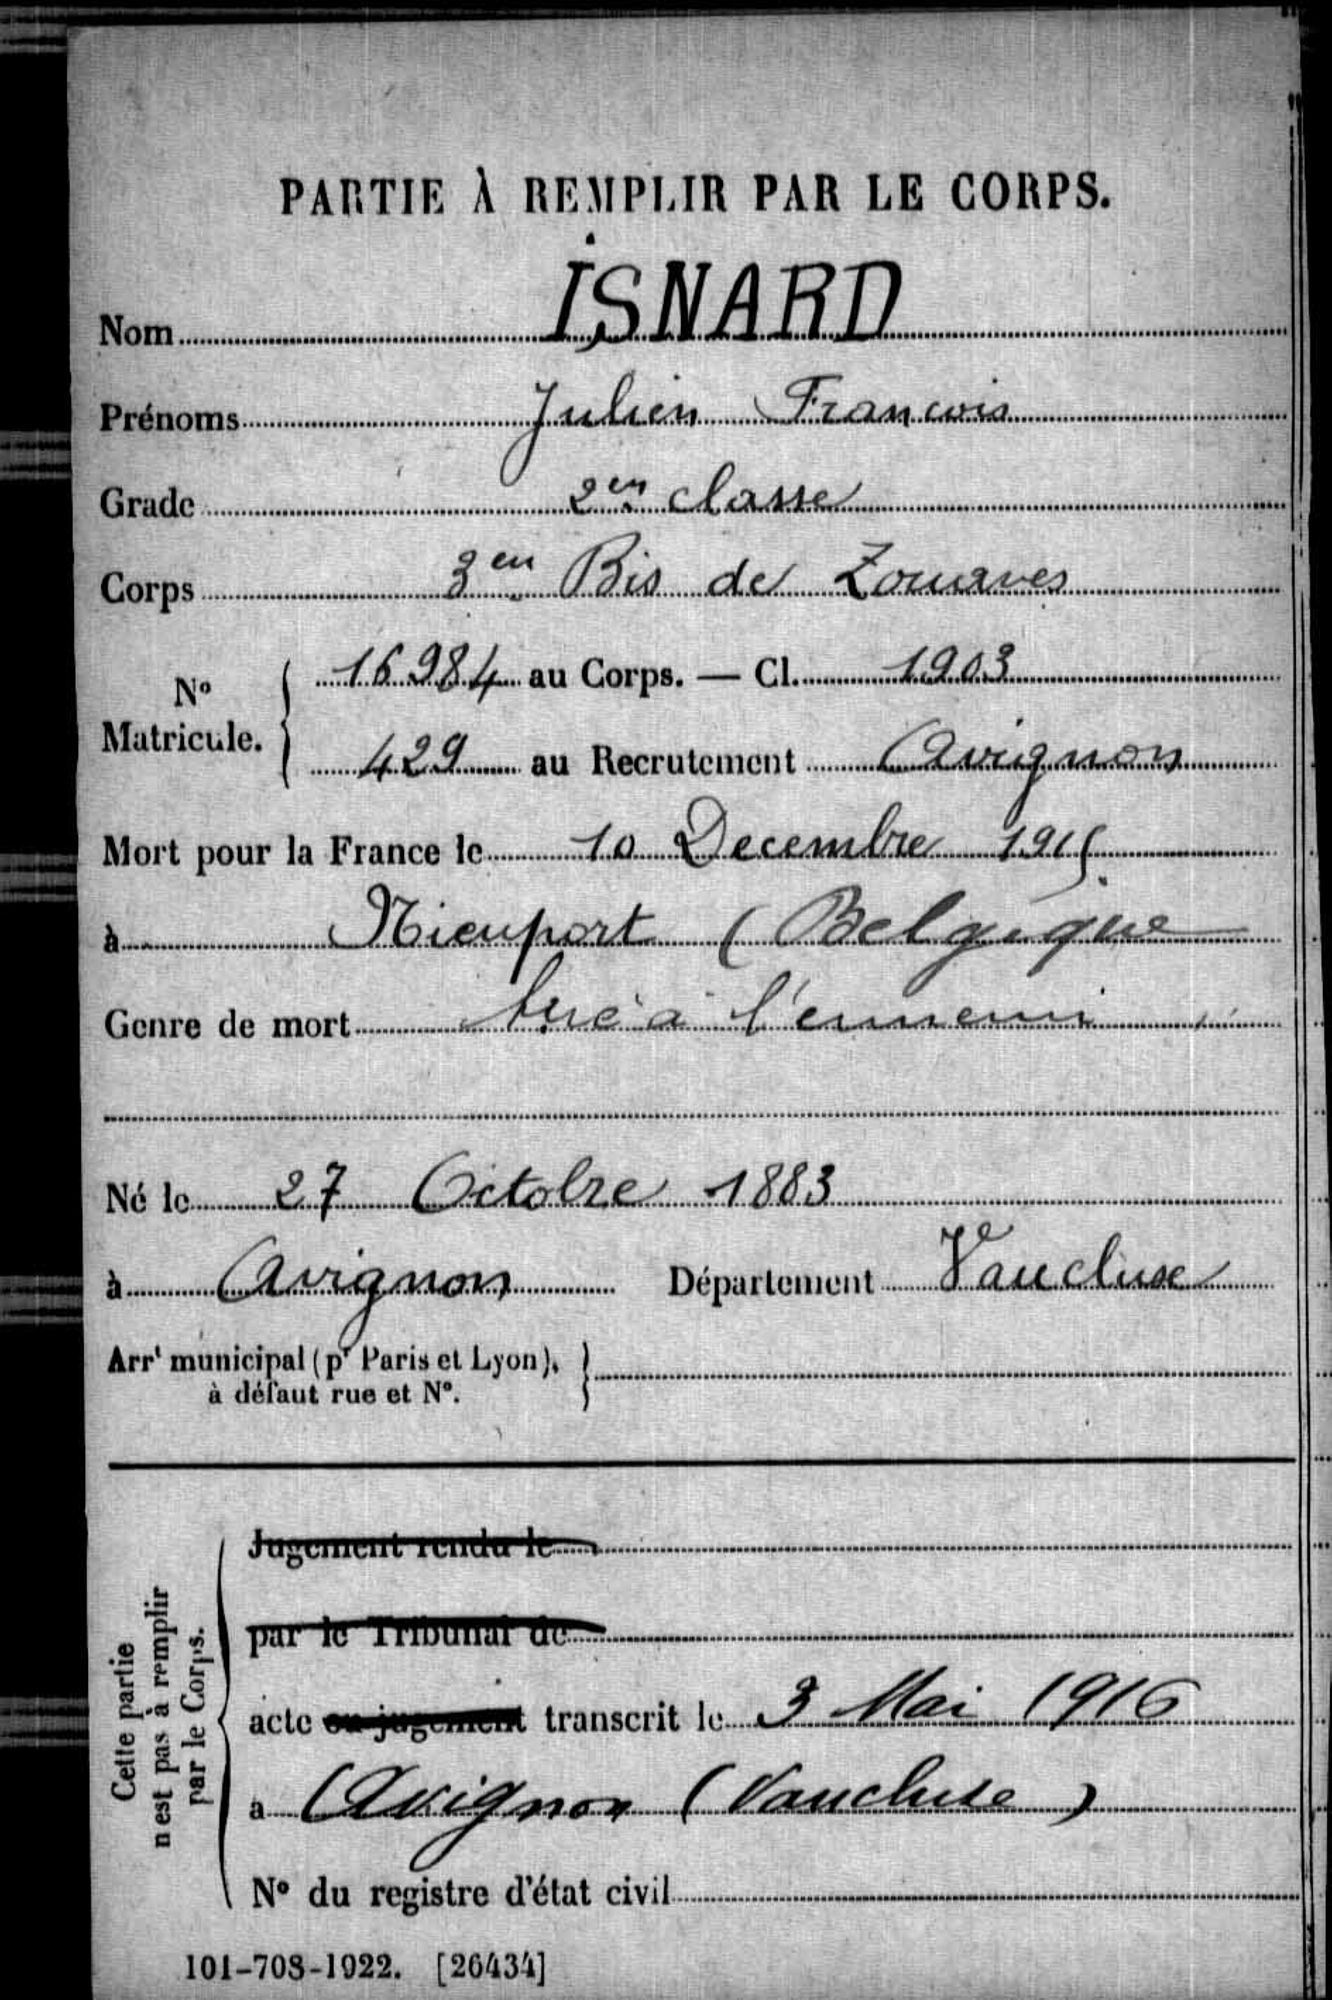 PARTIE À REMPLIR PAR LE CORPS.
Nom ISNARD
Prénoms Julien Francois
Grade 2en classe
Corps 3en Bis de Zouaves
No Matricule. { 16984 au Corps. — Cl. 1903
429 au Recrutement Avignon
Mort pour la France le 10 Decembre 1915.
à Nieuport (Belgique
Genre de mort tué à l'ennemi
Né le 27 Octobre 1883
à Avignon Département Vaucluse
Arrt municipal (pr Paris et Lyon), }
à défaut rue et No.
Cette partie
n'est pas à remplir
par le Corps.
Jugement rendu le
par le Tribunal de
acte ou jugement transcrit le 3 Mai 1916
a Avignon (Vaucluse)
No du registre d'état civil
101-708-1922. [26434]